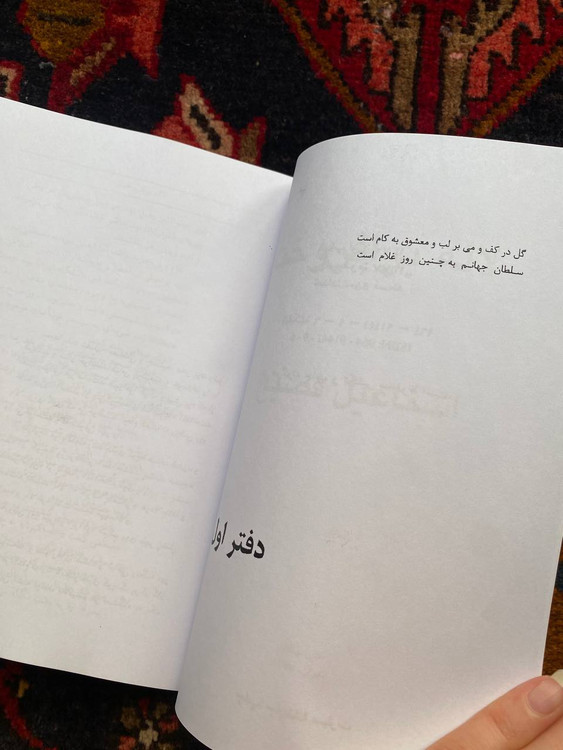 گل در کف و می بر لب و معشوق به کام است
سلطان جهانم به چنین روز غلام است
دفتر اول